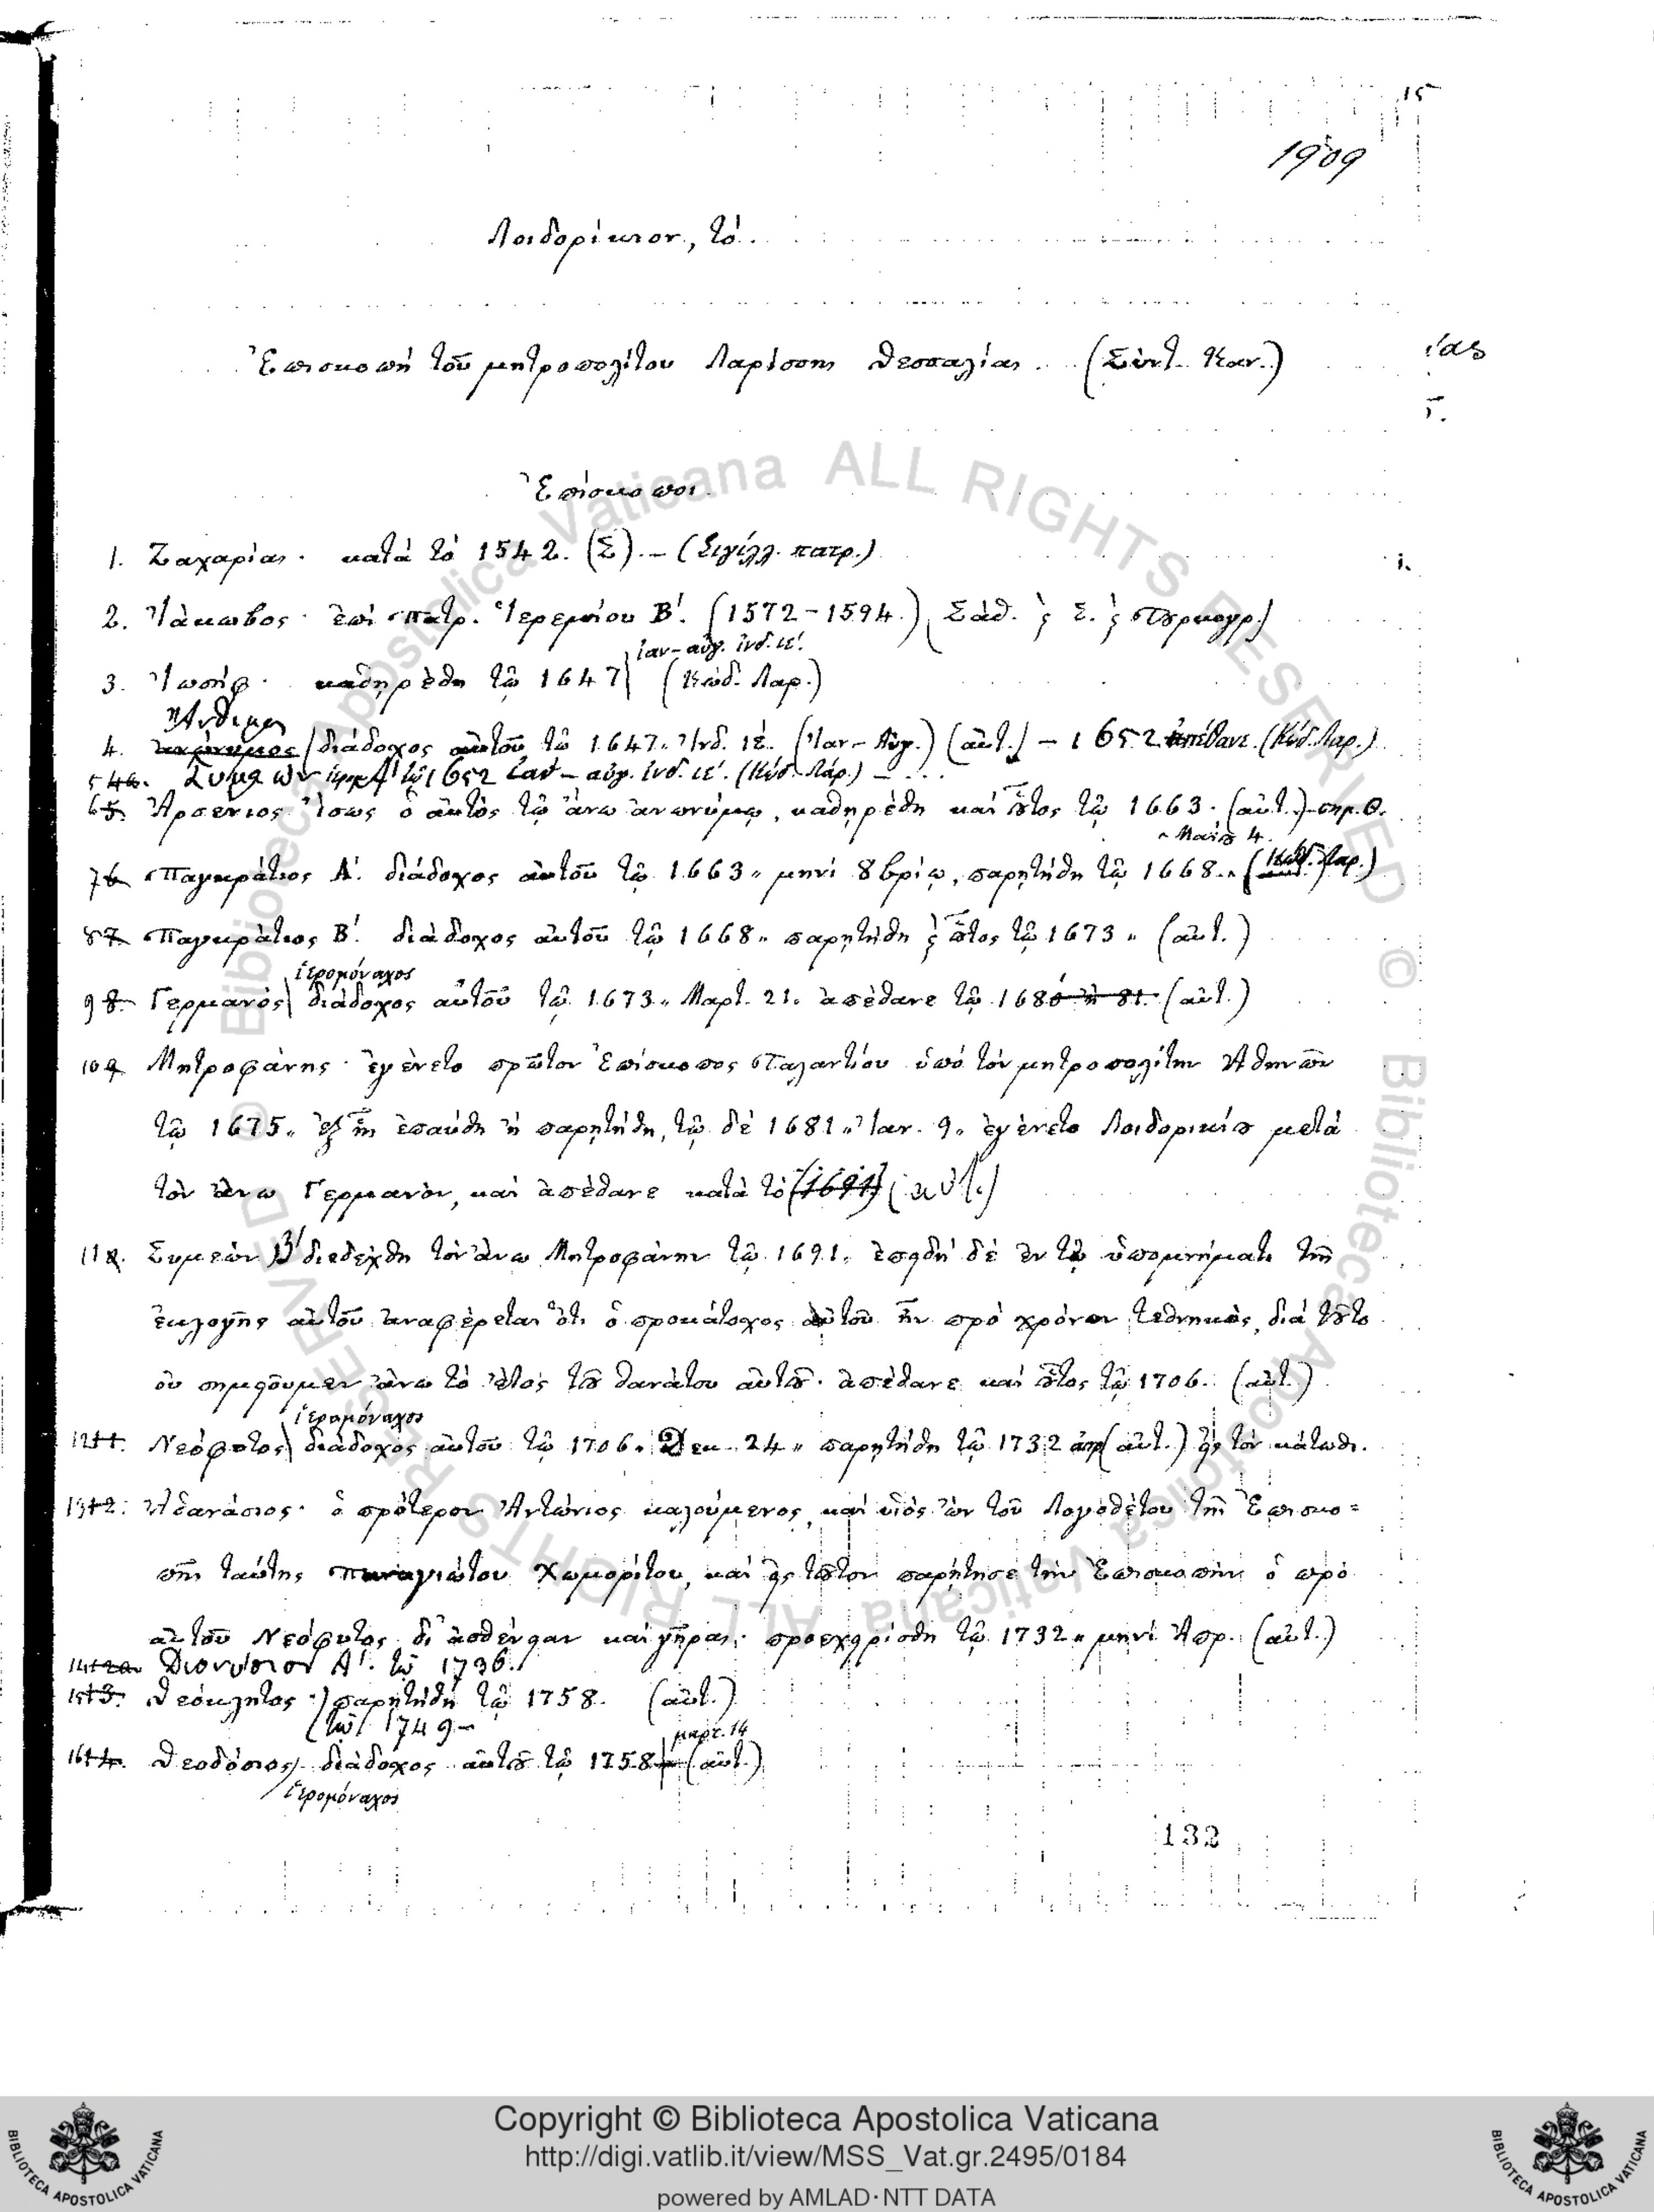 15
1909
Λοιδορίκιον, τό.
Ἐπισκοπή τοῦ μητροπολίτου Λαρίσσης Θεσσαλίας. (Σύντ. Καν.)
Ἐπίσκοποι
1. Ζαχαρίας· κατά τό 1542. (Σ). – (Σιγίλλ. πατρ.)
2. Ἰάκωβος· ἐπί Πατρ. Ἱερεμίου Β΄. (1572–1594.) Σάθ. ϗ Σ. ϗ
ἰαν–αὔγ. ἰνδ. ιε΄.
3. Ἰωσήφ· καθῃρέθη τῷ 1647 (Κώδ. Λαρ.)
Ἄνθιμος
4. ἀνώνυμος διάδοχος αὐτοῦ τῷ 1647. Ἰνδ. ιε. (Ἰαν–Αὔγ.) (αὐτ.) – 1652 ἀπέθανε. (Κώδ. Λαρ.)
5 4α. Συμεών Α΄ τῷ 1652 ἰαν–αὐγ. ἰνδ. ιε΄. (Κώδ. Λάρ.) –
6 5. Ἀρσένιος ἴσως ὁ αὐτός τῷ ἄνω ἀνωνύμῳ, καθῃρέθη καί οὗτος τῷ 1663. (αὐτ.)
Μαΐου 4.
7 6 Παγκράτιος Α΄. διάδοχος αὐτοῦ τῷ 1663. μηνί 8βρίῳ, παρῃτήθη τῷ 1668. (Κώδ. Λαρ.)
8 7. Παγκράτιος Β΄. διάδοχος αὐτοῦ τῷ 1668. παρῃτήθη ϗ οὗτος τῷ 1673. (αὐτ.)
ἱερομόναχος
9 8. Γερμανός διάδοχος αὐτοῦ τῷ 1673. Μαρτ. 21. ἀπέθανε τῷ 1680 ἤ 81. (αὐτ.)
10 9 Μητροφάνης· ἐγένετο πρῶτον Ἐπίσκοπος Ταλαντίου ὑπό τόν μητροπολίτην Ἀθηνῶν
τῷ 1675. ἐξ ἧς ἐπαύθη ἤ παρῃτήθη, τῷ δέ 1681. Ἰαν. 9. ἐγένετο Λοιδορικίου μετά
τόν ἄνω Γερμανόν, καί ἀπέθανε κατά τό (1691) (αὐτ.)
11 Συμεών Β΄ διεδέχθη τόν ἄνω Μητροφάνην τῷ 1691. ἐπειδή δέ ἐν τῷ ὑπομνήματι τῆς
ἐκλογῆς αὐτοῦ ἀναφέρεται ὅτι ὁ προκάτοχος αὐτοῦ ἦν πρό χρόνων τεθνηκώς, διά τοῦτο
οὐ σημειοῦμεν ἄνω τό ἔτος τοῦ θανάτου αὐτοῦ· ἀπέθανε καί οὗτος τῷ 1706. (αὐτ.)
ἱερομόναχος
12 11. Νεόφυτος διάδοχος αὐτοῦ τῷ 1706. Δεκ. 24. παρῃτήθη τῷ 1732 ἀπρ (αὐτ.) εἰς τόν κάτωθι.
13 12. Ἀθανάσιος· ὁ πρότερον Ἀντώνιος καλούμενος, καί υἱός ὤν τοῦ Λογοθέτου τῆς Ἐπισκο=
πῆς ταύτης Παναγιώτου Χωμορίτου, καί εἰς τοῦτον παρῄτησε τήν Ἐπισκοπήν ὁ πρό
αὐτοῦ Νεόφυτος δι' ἀσθένειαν καί γῆρας· προεχειρίσθη τῷ 1732. μηνί Ἀπρ. (αὐτ.)
14 12α Διονύσιος Α΄. τῷ 1736.
15 13. Θεόκλητος· παρῃτήθη τῷ 1758. (αὐτ.)
(τῷ 1749 –
μαρτ. 14
16 14. Θεοδόσιος διάδοχος αὐτοῦ τῷ 1758 (αὐτ.)
ἱερομόναχος
132
Copyright © Biblioteca Apostolica Vaticana
http://digi.vatlib.it/view/MSS_Vat.gr.2495/0184
powered by AMLAD·NTT DATA